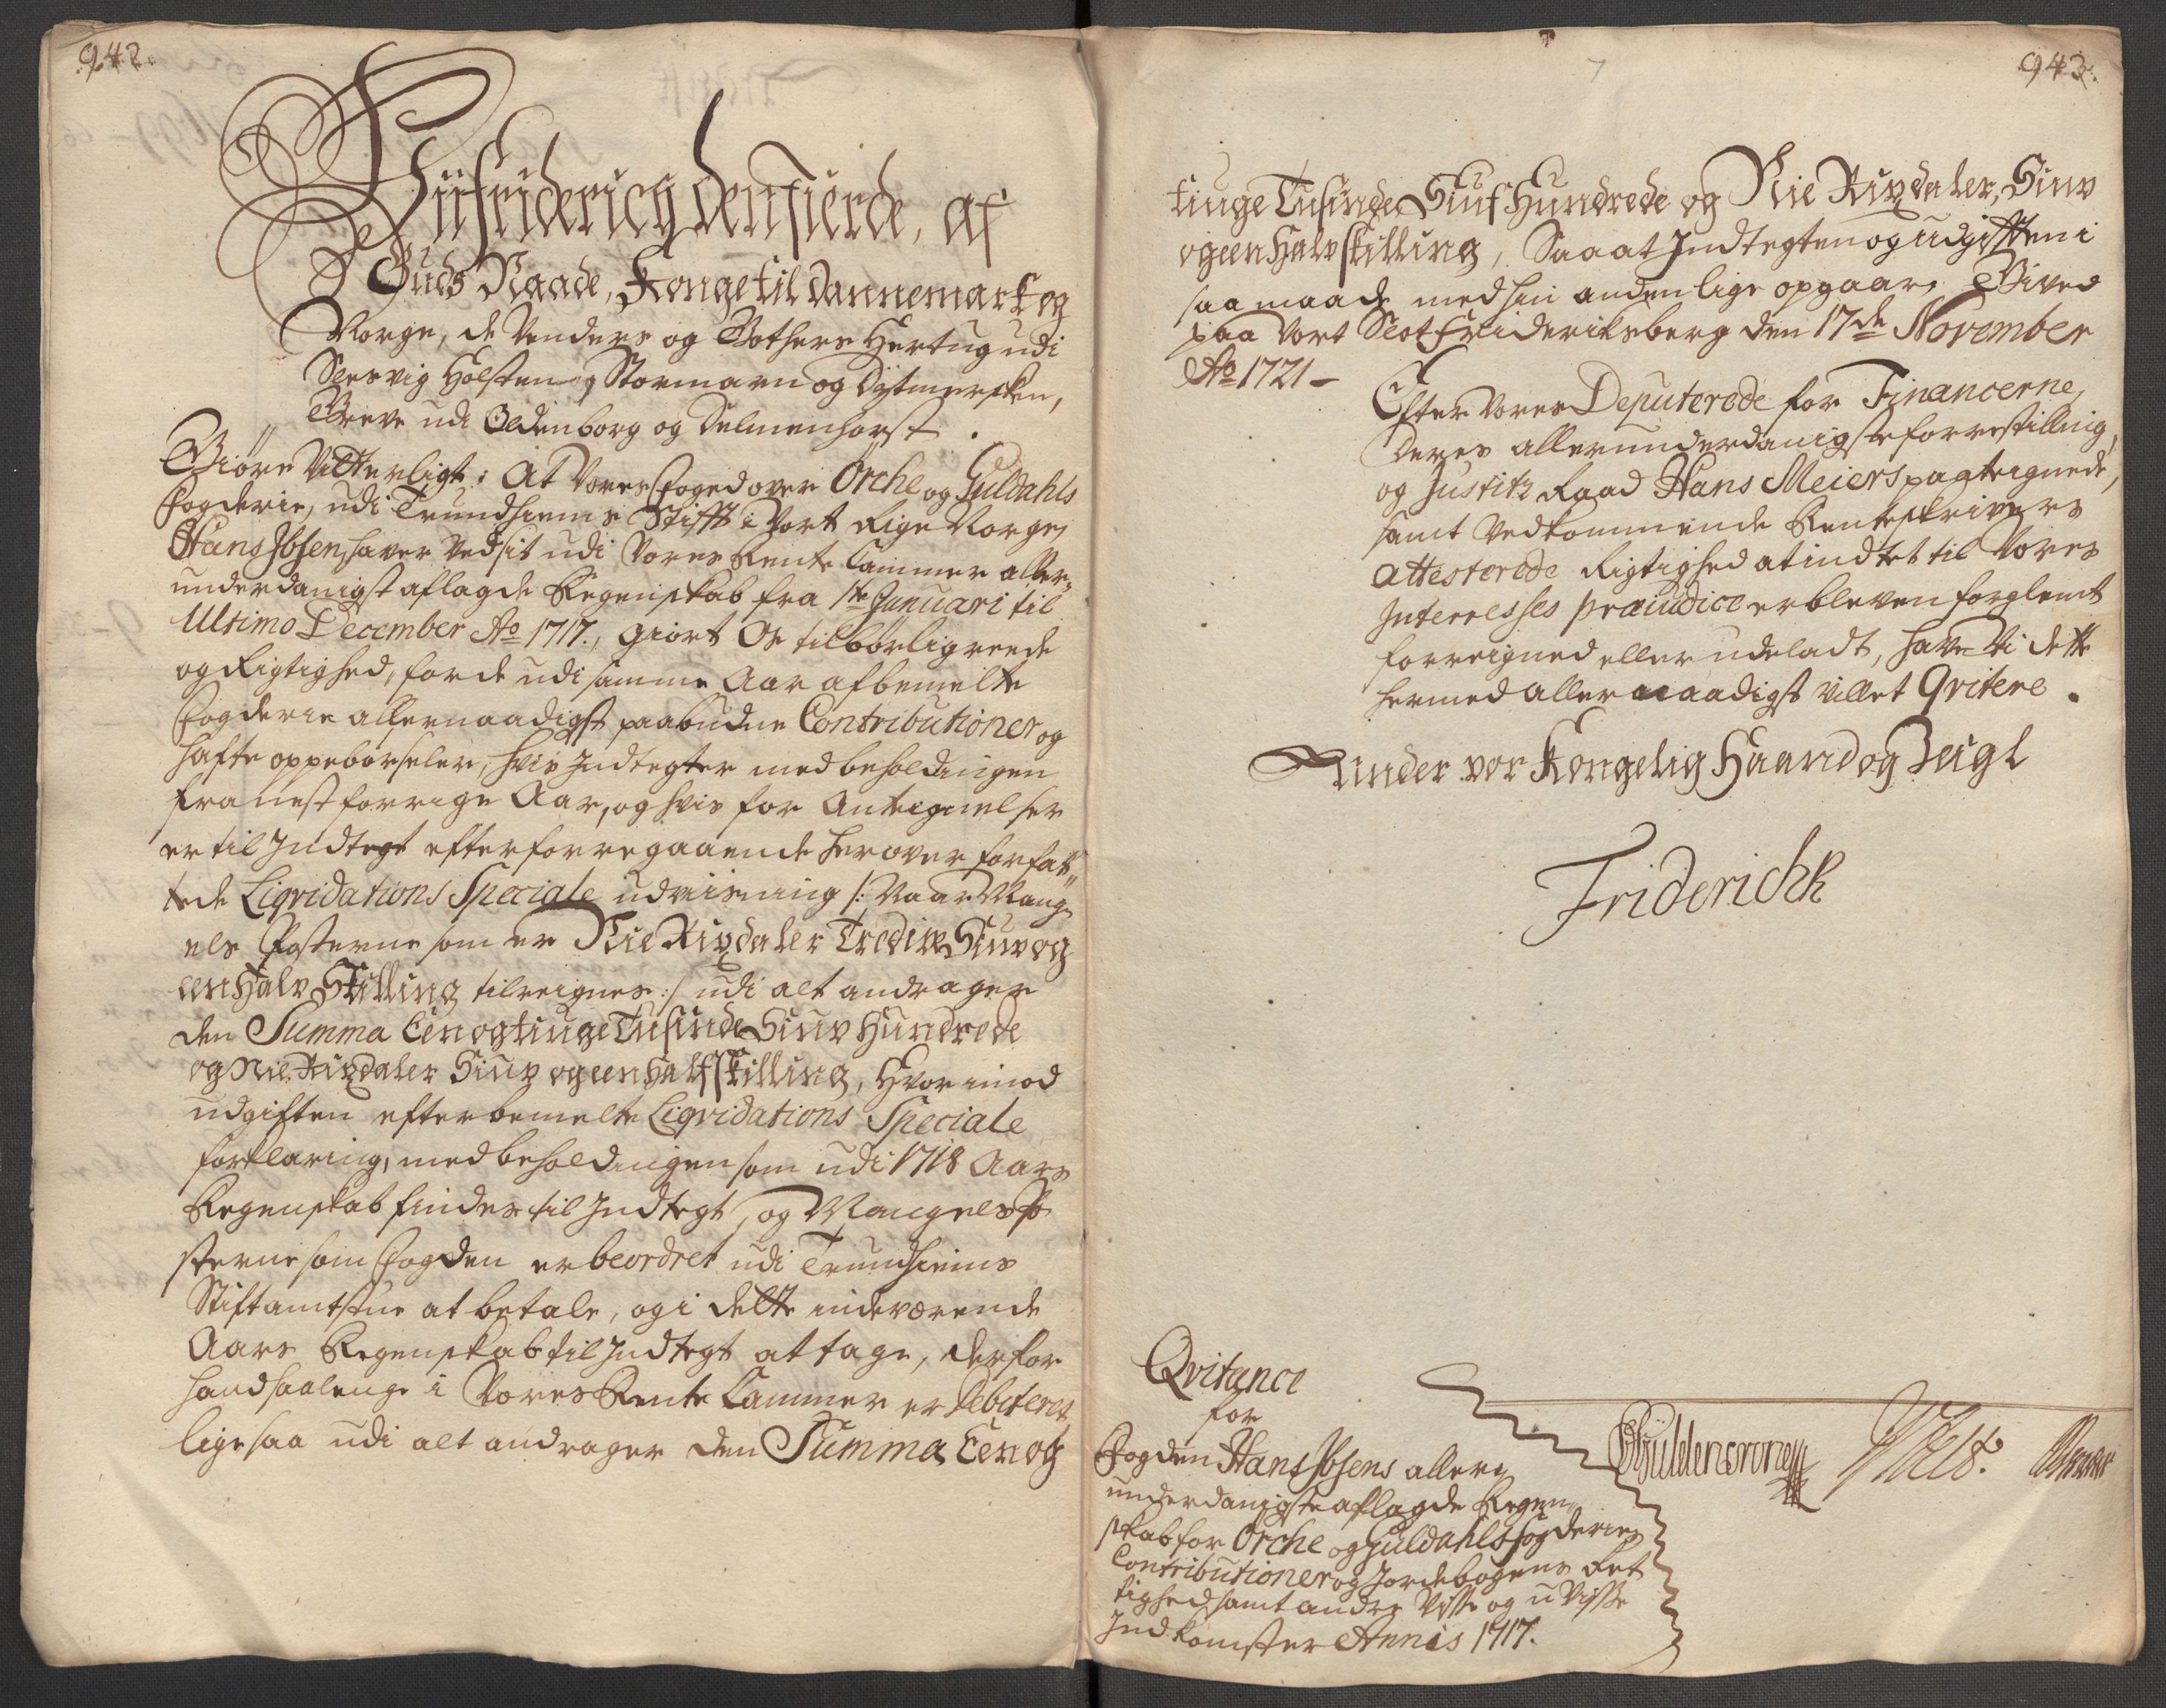 942.
Wii Friderich den fierde, af
Guds Naade, Konge til Dannemark og
Norge, de Venders og Gothers Hertug udi
Slesvig Holsten Stormarn og Dytmersken,
Greve udi Oldenborg og Delmenhorst.
Giøre Vitterligt: At Vores Foged over Orche og Guldahls
Fogderie, udi Trundhiems Stifft i Vort Rige Norge,
Hans Ibsen, haver Ved sit udi Vores Rente Cammer aller-
underdanigst aflagde Regenskab fra 1te Januari til
Ultimo December Ao 1717., giort Os tilbørlig reede
og Rigtighed, for de udi samme Aar af bemelte
Fogderie allernaadigst paabudne Contributioner og
hafte oppebørseler, hvis Indtegter med beholdningen
fra nest forrige Aar, og hvis for Antegnelser
er til Indtegt efter forregaaende herover forfatt-
tede Liqvidations Speciale udviisning /: Naar Mang-
els Posterne som er Nie Rixdaler Tredive Siuv og
een Halv Skilling tilreignes :/ udi alt andrager
den Summa Een og tiuge Tusinde Siuv Hundrede
og Nie Rixdaler Siuv og een half skilling, Hvorimod
udgiften efter bemelte Liqvidations Speciale
forklaring, med beholdningen som udi 1718 Aars
Regenskab findes til Indtegt, og Mangels Po-
sterne som Fogden er beordret udi Trundhiems
Stiftamtstue at betale, og i dette indeværende
Aars Regenskab til Indtegt at tage, derfor
hand saalenge i Vores Rente Cammer er debiteret,
ligesaa udi alt andrager den Summa Een og
943.
tiuge Tusinde Siuf Hundrede og Nie Rixdaler, Siuv
og een Halv skilling, Saa at Indtegten og udgiften i
saa maade med hin anden lige opgaar. Gived
paa Vort Slot Frideriksberg den 17de November
Ao 1721 -
Efter Vores Deputerede for Financerne,
deres allerunderdanigste forrestilling,
og Justitz Raad Hans Meiers paategnede,
samt Vedkommende Renteskrivers
attesterede Rigtighed at indtet til Vores
Interesses præiudice er bleven forglemt
forreigned eller udeladt, have Vi dette
hermed allernaadigst Villet Qvitere.
Under vor Kongelig Haand og Zeigl
Friderich R
Qvitance
for
Fogden Hans Ibsens aller-
underdanigste aflagde Regen-
skab for Orche og Guldahls Fogderies
Contributioner og Jordebogens Ret
tighed samt andre Visse og u Visse
Indkomster Annis 1717.
CGüldencrone